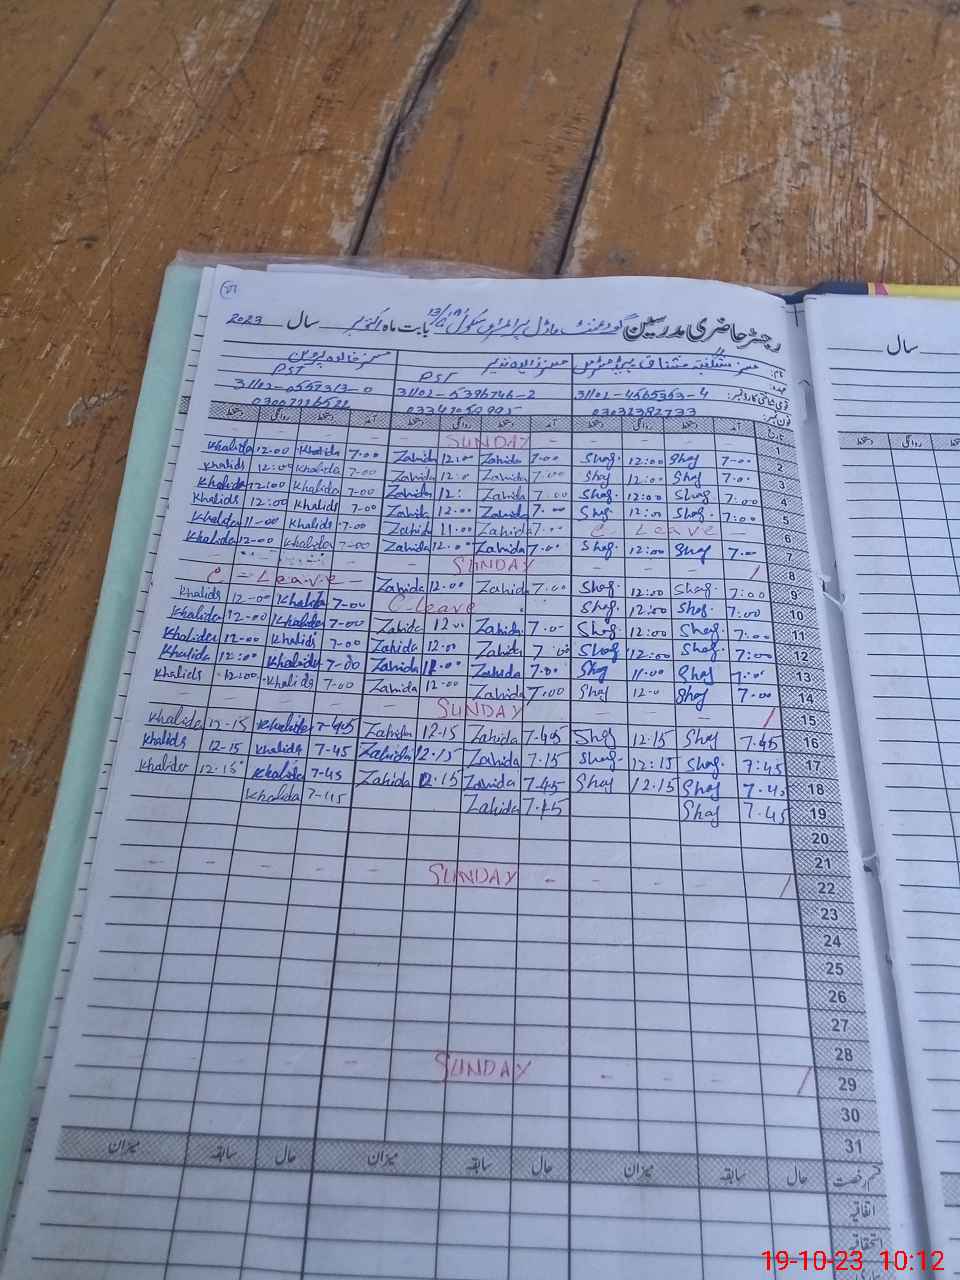 رجسٹر حاضری مدرسین گورنمنٹ ماڈل پرائمری سکول بابت ماہ اکتوبر سال 2023
سال
نام: مسز شگفتہ مشتاق مسز زاہدہ نذیر مسز خالدہ پروین
عہدہ: PST PST
قومی شناختی کارڈ نمبر: 31102-4565363-4 31102-5396746-2
فون نمبر: 03032382733
تاریخ آمد دستخط روانگی دستخط آمد دستخط روانگی دستخط آمد دستخط روانگی دستخط
روانگی دستخط
1 SUNDAY
2 7-00 Shag 12:00 Shag. 7.00 Zahida 12:00 Zahida 7.00 Khalida 12.00 Khalida
3 7.00 Shag 12:00 Shag 7.00 Zahida 12:0 Zahida 7-00 Khalida 12:00 Khalids
4 7:00 Shag. 12:00 Shag. 7:00 Zahida 12: Zahida 7-00 Khalida 12:00 Khalida
5 7:00 Shag. 12:00 Shag 7.00 Zahida 12.00 Zahida 7-00 Khalids 12:00 Khalids
6 C Leave 7.00 Zahida 11.00 Zahida 7-00 Khalids 11-00 Khalida
7 7.00 Shag 12:00 Shag. 7.00 Zahida 12.00 Zahida 7-00 Khalida 12-00 Khalida
8 SUNDAY
9 7:00 Shag. 12:00 Shag. 7.00 Zahida 12.00 Zahida C-Leave
10 7:00 Shag. 12:00 Shag. C-leave 7-00 Khalida 12-00 Khalids
11 7:00 Shag. 12:00 Shag. 7.00 Zahida 12.00 Zahida 7-00 Khalida 12-00 Khalida
12 7:00 Shag. 12:00 Shag 7.00 Zahida 12.00 Zahida 7-00 Khalids 12-00 Khalida
13 7.00 Shag 11.00 Shag 7.00 Zahida 11.00 Zahida 7-00 Khalida 12:00 Khalida
14 7.00 Shag 12.0 Shag 7.00 Zahida 12.00 Zahida 7-00 Khalids 12:00 Khalids
15 SUNDAY
16 7.45 Shag 12.15 Shag 7.45 Zahida 12.15 Zahida 7-45 Khalida 12-15 Khalida
17 7:45 Shag. 12:15 Shag. 7.15 Zahida 12.15 Zahida 7-45 Khalida 12-15 Khalids
18 7.45 Shag 12.15 Shag 7.45 Zahida 12.15 Zahida 7-45 Khalida 12.15 Khalida
19 7.45 Shag 7.45 Zahida 7-45 Khalida
20
21
22 SUNDAY
23
24
25
26
27
28
29 SUNDAY
30
31
قسم رخصت حال سابقہ میزان حال سابقہ میزان حال سابقہ میزان
اتفاقیہ
استحقاقیہ
19-10-23 10:12